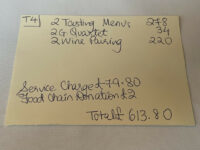 T4
2 Tasting Menus 278
2 G Quartet 34
2 Wine Pairing 220
Service Charge £79.80
Food Chain Donation £2
Total £ 613.80